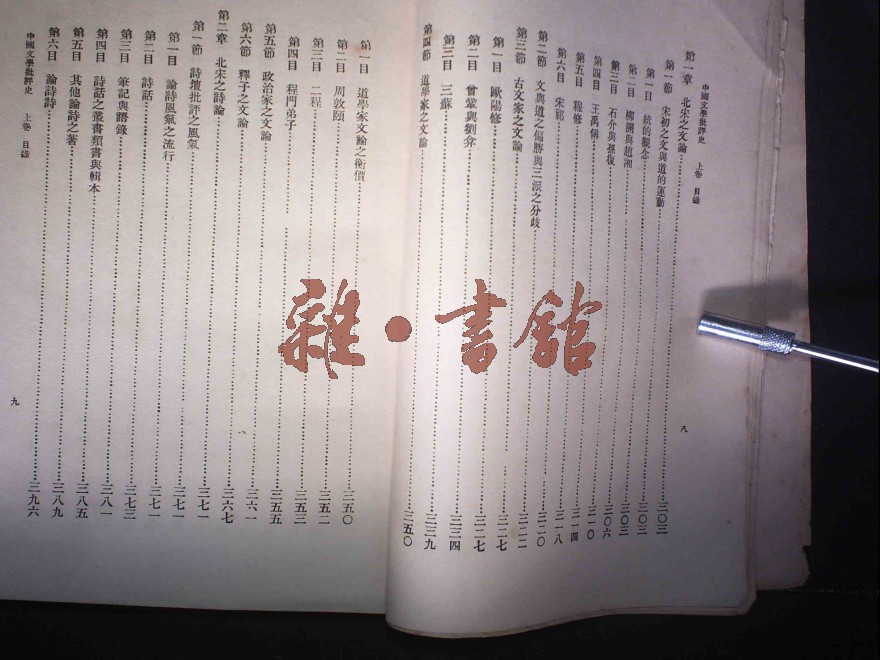 中國文學批評史 上卷 目錄
第一章 北宋之文論 三〇三
第一節 宋初之文與道的運動 三〇三
第一目 統的觀念 三〇三
第二目 柳開與趙湘 三〇三
第三目 石介與孫復 三〇六
第四目 王禹偁 三一〇
第五目 穆修 三一四
第六目 宋祁 三一八
第二節 文與道之偏勝與三派之分歧 三二〇
第三節 古文家之文論 三二二
第一目 歐陽修 三二七
第二目 曾鞏與劉弇 三二七
第三目 三蘇 三三四
第四節 道學家之文論 三五〇
八
第一目 道學家文論之衡價 三五〇
第二目 周敦頤 三五二
第三目 二程 三五三
第四目 程門弟子
第五節 政治家之文論 三五五
第六節 釋子之文論 三六一
第二章 北宋之詩論 三六七
第一節 詩壇批評之風氣 三七一
第一目 論詩風氣之流行 三七一
第二目 詩話 三七一
第三目 筆記與語錄 三七三
第四目 詩話之叢書類書與輯本 三八一
第五目 其他論詩之著 三八五
第六目 論詩詩 三八九
三九六
中國文學批評史 上卷 目錄
九
雜·書館